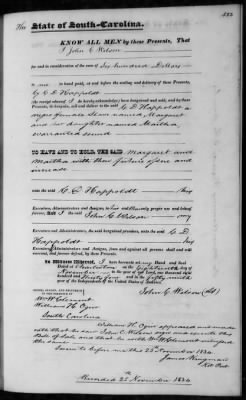 The State of South-Carolina.
KNOW ALL MEN by these Presents, That
I John C Wilson
for and in consideration of the sum of Six hundred Dollars
to me in hand paid, at and before the sealing and delivery of these Presents,
by C D Happoldt
(the receipt whereof I do hereby acknowledge) have bargained and sold, and by these
Presents, do bargain, sell and deliver to the said C D Happoldt a
negro female slave named Margaret
and her daughter named Martha,
warranted sound
TO HAVE AND TO HOLD, THE SAID Margaret and
Martha with their future issue and
increase
unto the said C D Happoldt his
Executors, Administrators and Assigns, to his and their only proper use and behoof
forever. And I the said John C Wilson my
Executors and Administrators, the said bargained premises, unto the said C D
Happoldt his
Executors, Administrators and Assigns, from and against all persons shall and will
warrant, and forever defend, by these Presents.
In Witness Whereof, I have hereunto set my Hand and Seal
Dated at Charleston on the Eighteenth day of
November in the year of our Lord, one thousand
eight hundred and thirty four and in the fifty ninth
year of the Independence of the United States of America.
SIGNED, SEALED, AND DELIVERED
IN THE PRESENCE OF
John C. Wilson (LS)
Wm W Clement
William H. Oyer
South Carolina
William H. Oyer appeared and made
oath that he saw John C Wilson sign and execute the above
Bill of Sale, and that he with Wm W Clement witnessed
the same
Sworn to before me this 25th November 1834
James Kingman
Not Pub
Recorded 25 November 1834